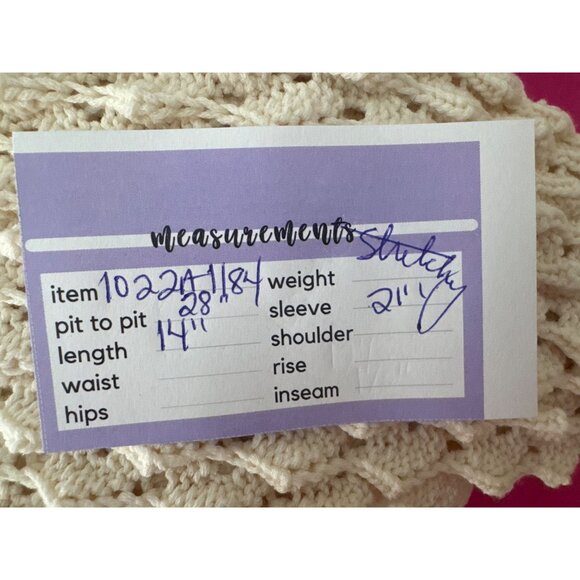 measurements
Stretchy
item 1022A1184
pit to pit 28"
length 14"
waist
hips
weight
sleeve 21"
shoulder
rise
inseam